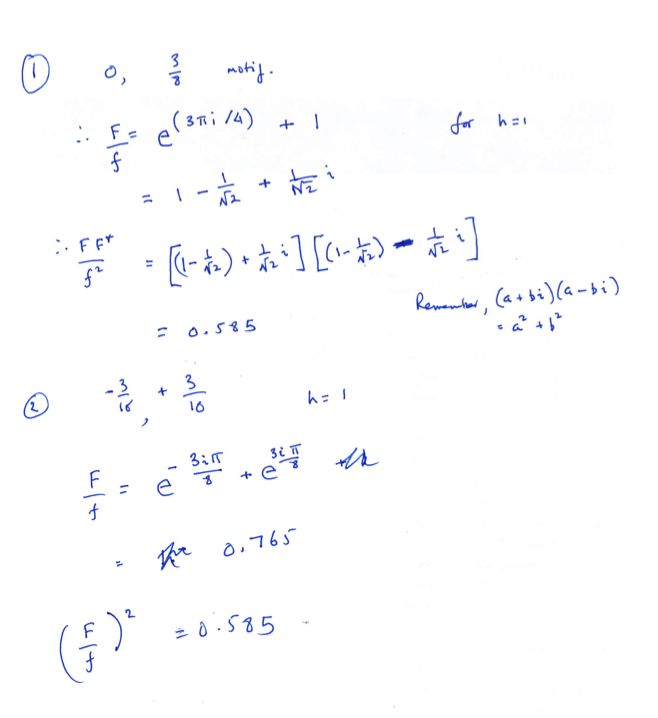 ① 0, 3/8 motif.
∴ F/f = e^(3πi/4) + 1 for h=1
= 1 - 1/√2 + 1/√2 i
∴ FF*/f² = [(1-1/√2) + 1/√2 i] [(1-1/√2) - 1/√2 i]
Remember, (a+bi)(a-bi)
= a² + b²
= 0.585
② -3/16, + 3/16 h=1
F/f = e^(-3iπ/8) + e^(3iπ/8)
= 0.765
(F/f)² = 0.585